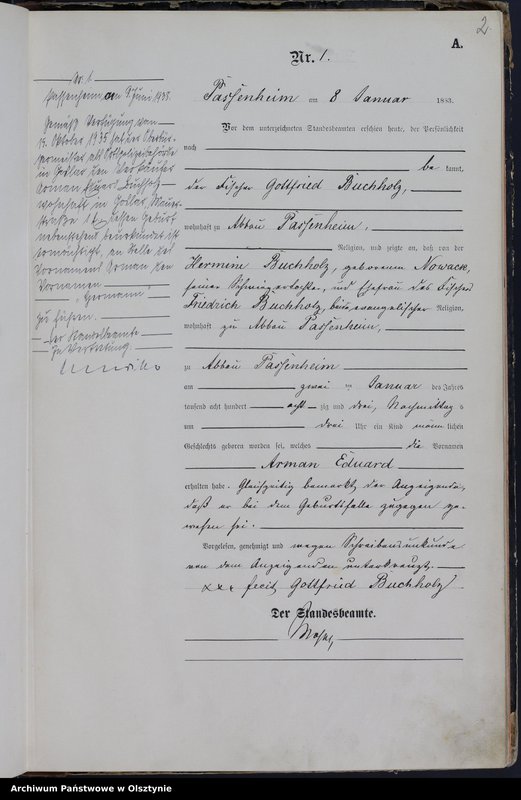 2.
A.
Nr. 1.
Passenheim am 8 Januar 1883.
Vor dem unterzeichneten Standesbeamten erschien heute, der Persönlichkeit
nach
be kannt,
der Fischer Gottfried Buchholz,
wohnhaft zu Abbau Passenheim,
Religion, und zeigte an, daß von der
Hermine Buchholz, geborenen Nowack,
seiner Schwiegertochter, und Ehefrau des Fischer
Friedrich Buchholz, beide evangelischer Religion,
wohnhaft zu Abbau Passenheim,
zu Abbau Passenheim
am zwei ten Januar des Jahres
tausend acht hundert acht zig und drei, Nachmittag s
um drei Uhr ein Kind männ lichen
Geschlechts geboren worden sei, welches die Vornamen
Arman Eduard
erhalten habe. Gleichzeitig bemerkt der Anzeigende,
daß er bei dem Geburtsfalle zugegen ge-
wesen sei.
Vorgelesen, genehmigt und wegen Schreibensunkunde
von dem Anzeigenden unterkreuzt.
xxx fecit Gottfried Buchholz
Der Standesbeamte.
Nr. 1
Passenheim, am Juni 1938.
Gemäß Verfügung von
Oktober 1935 hat der Oberbür-
germeister als Ortspolizeibehörde
in Goslar den
Buchholz
wohnhaft in Goslar,
dessen Geburt
nebenstehend beurkundet ist
ermächtigt, an Stelle des
Vornamens Arman den
Vornamen
"Hermann"
zu führen.
Der Standesbeamte
In Vertretung
Archiwum Państwowe w Olsztynie